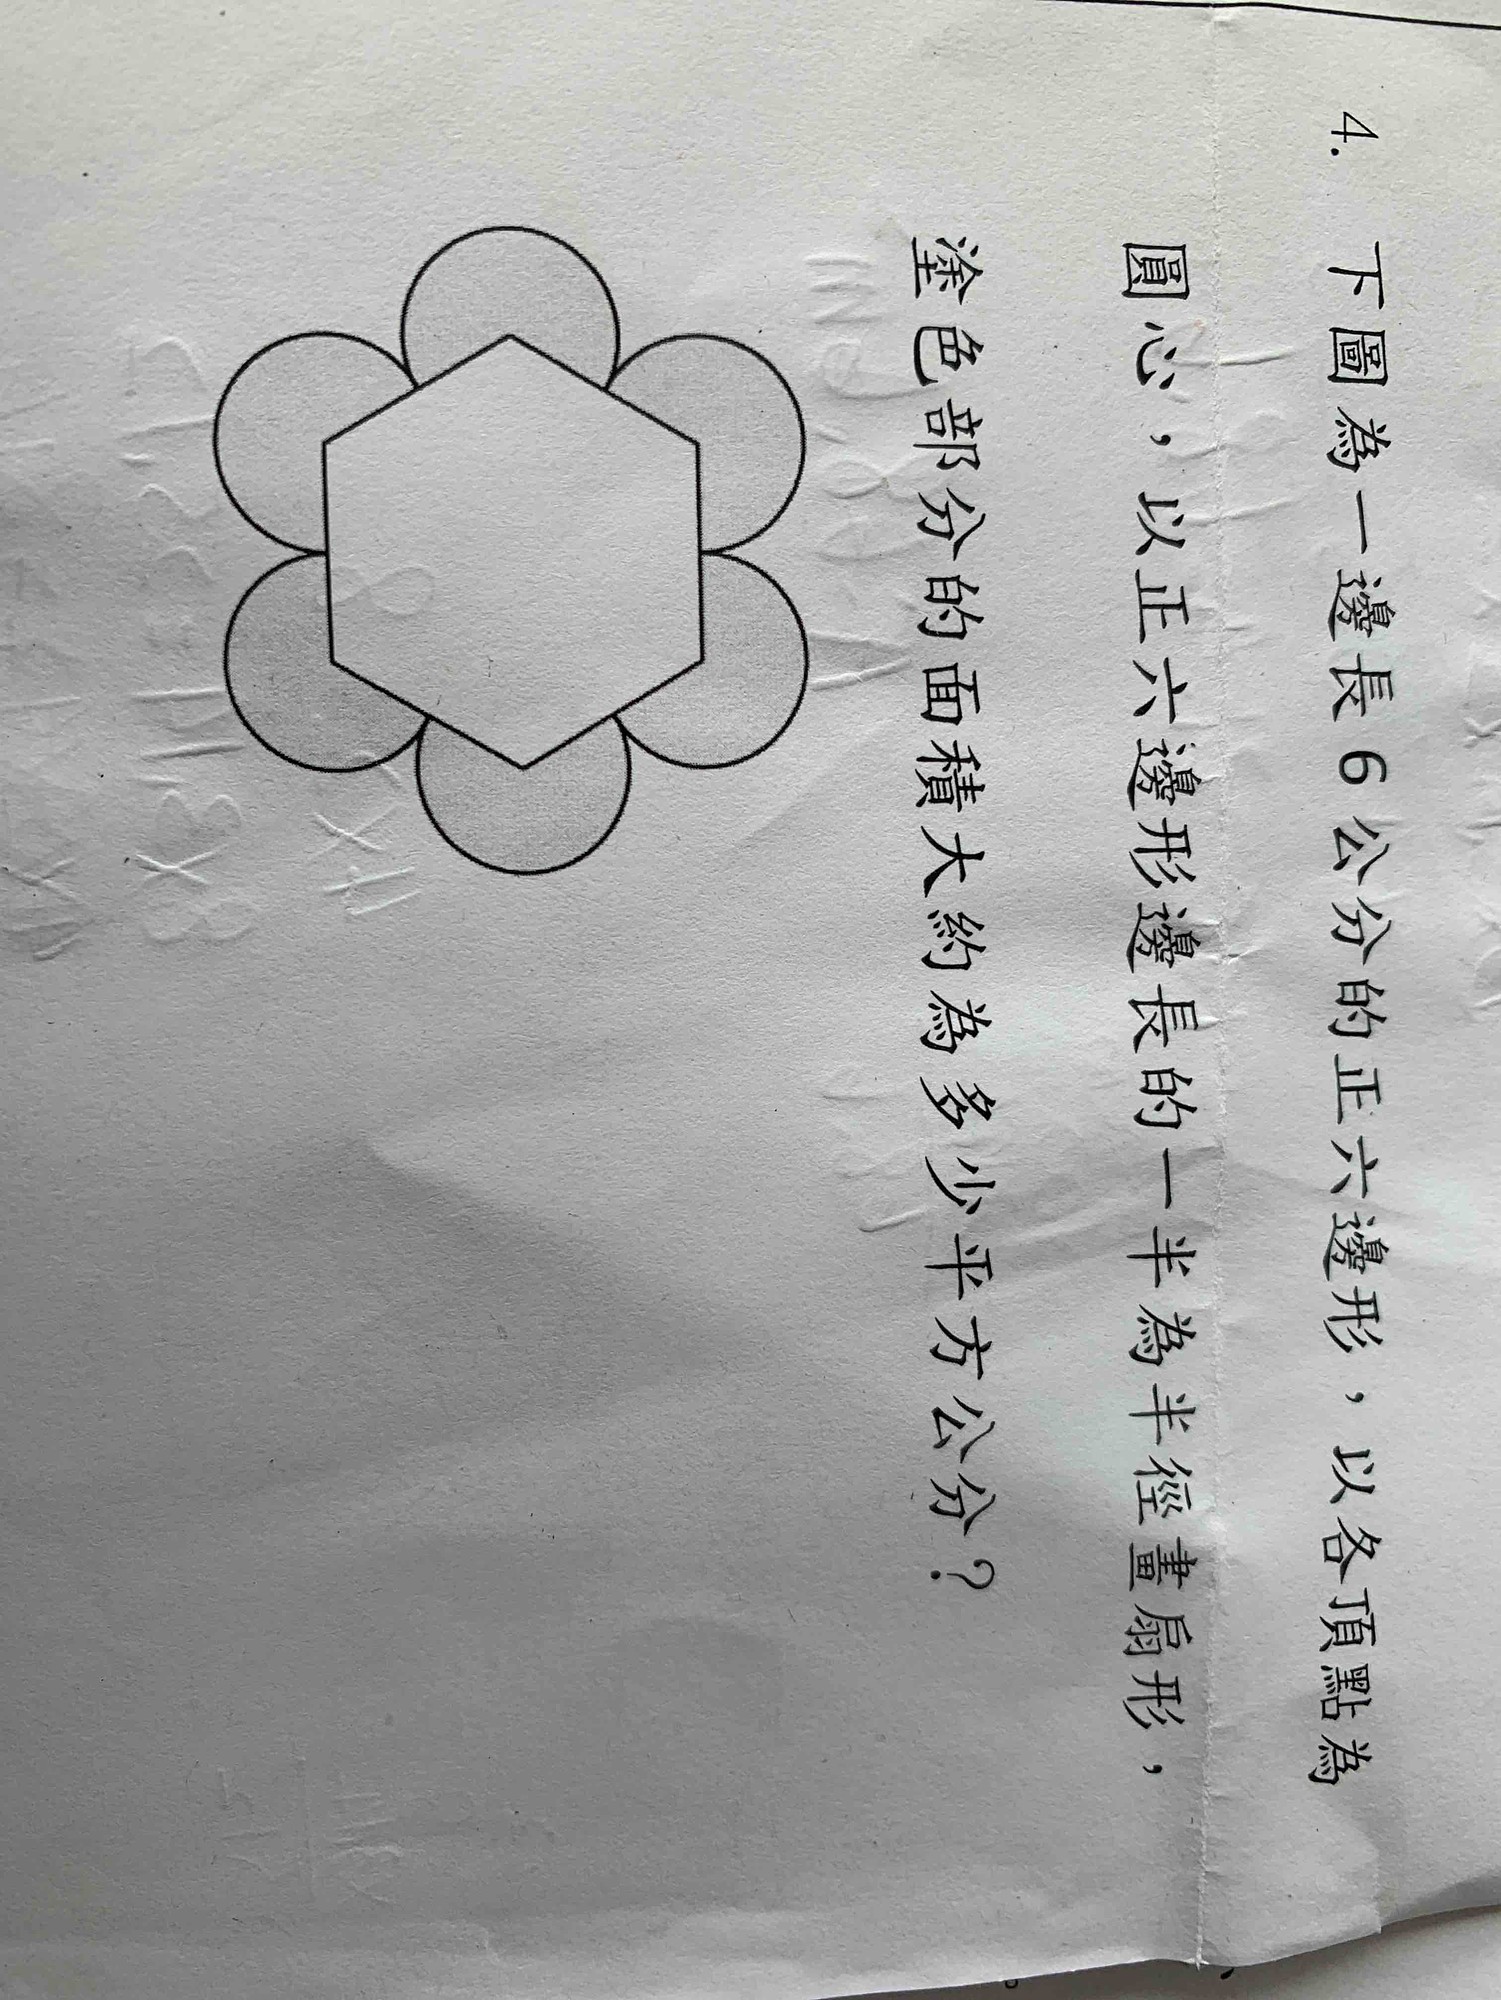 4. 下圖為一邊長 6 公分的正六邊形，以各頂點為
圓心，以正六邊形邊長的一半為半徑畫扇形，
塗色部分的面積大約為多少平方公分？